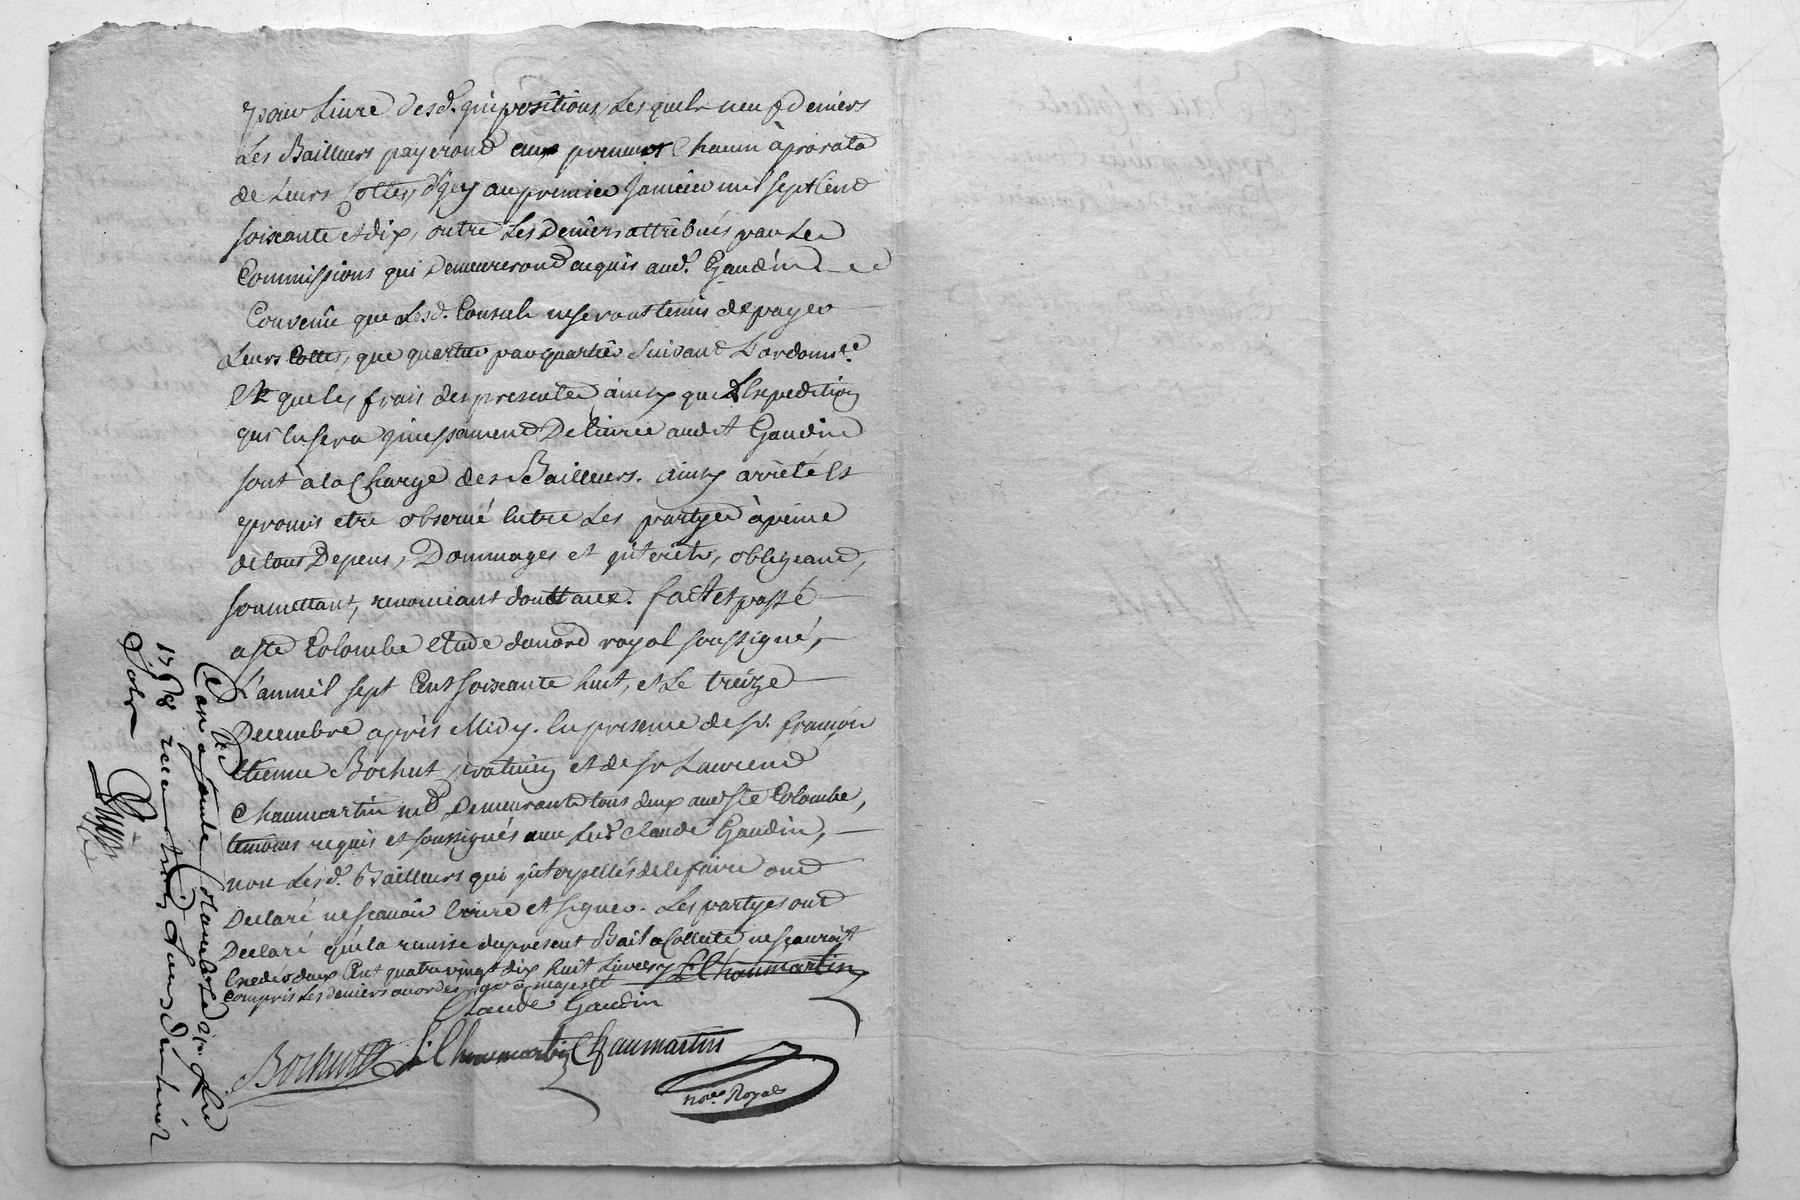 pour Livre desd. jmpositions, Les quels neuf deniers
Les Bailleurs payeront aux preneurs Chacun à prorata
de Leurs Cottes, d'jcy au premier Janvier mil sept Cent
soixante et dix, outre Les Deniers attribués par Les
Commissions qui Demeureront acquis aud. Gaudin
Convenu que Lesd. Consuls ne seront tenus de payer
Leurs Cottes, que quartier par quartier suivant L'ordonn.ce
Et que les frais des presentes ainsy que L'Expedition
qui en sera jncessament Delivrée audit Gaudin
sont à la Charge des Bailleurs. ainsy arrêté et
promis etre observé Entre Les partyes à peine
de tous Depens, Dommages et jnterêts, obligeant,
soumettant, renonceant dont acte. fact et passé
a Ste Colombe Etude du nore royal soussigné,
L'an mil sept Cent soixante huit, et Le treize
Decembre après Midy. En presence de sr. françois
Etienne Bochut praticien et de sr Laurend
Chaumartin md Demeurants tous deux aud Ste Colombe,
temoins requis et soussignés avec Led. Claude Gaudin,
non Lesd. Bailleurs qui jnterpellés de le faire ont
Declaré ne scavoir Ecrire et signer. Les partyes ont
Declaré que la remise du present Bail a Collecte ne scauroit
Exceder deux Cent quatre vingt dix huit Livres y
Compris Les deniers accordés par sa majesté
L. Chaumartin
Claude Gaudin
Bochut
Chaumartin
Chaumartin
nore. Royal
Con a sainte Colombe Le
1768 recu treize sous